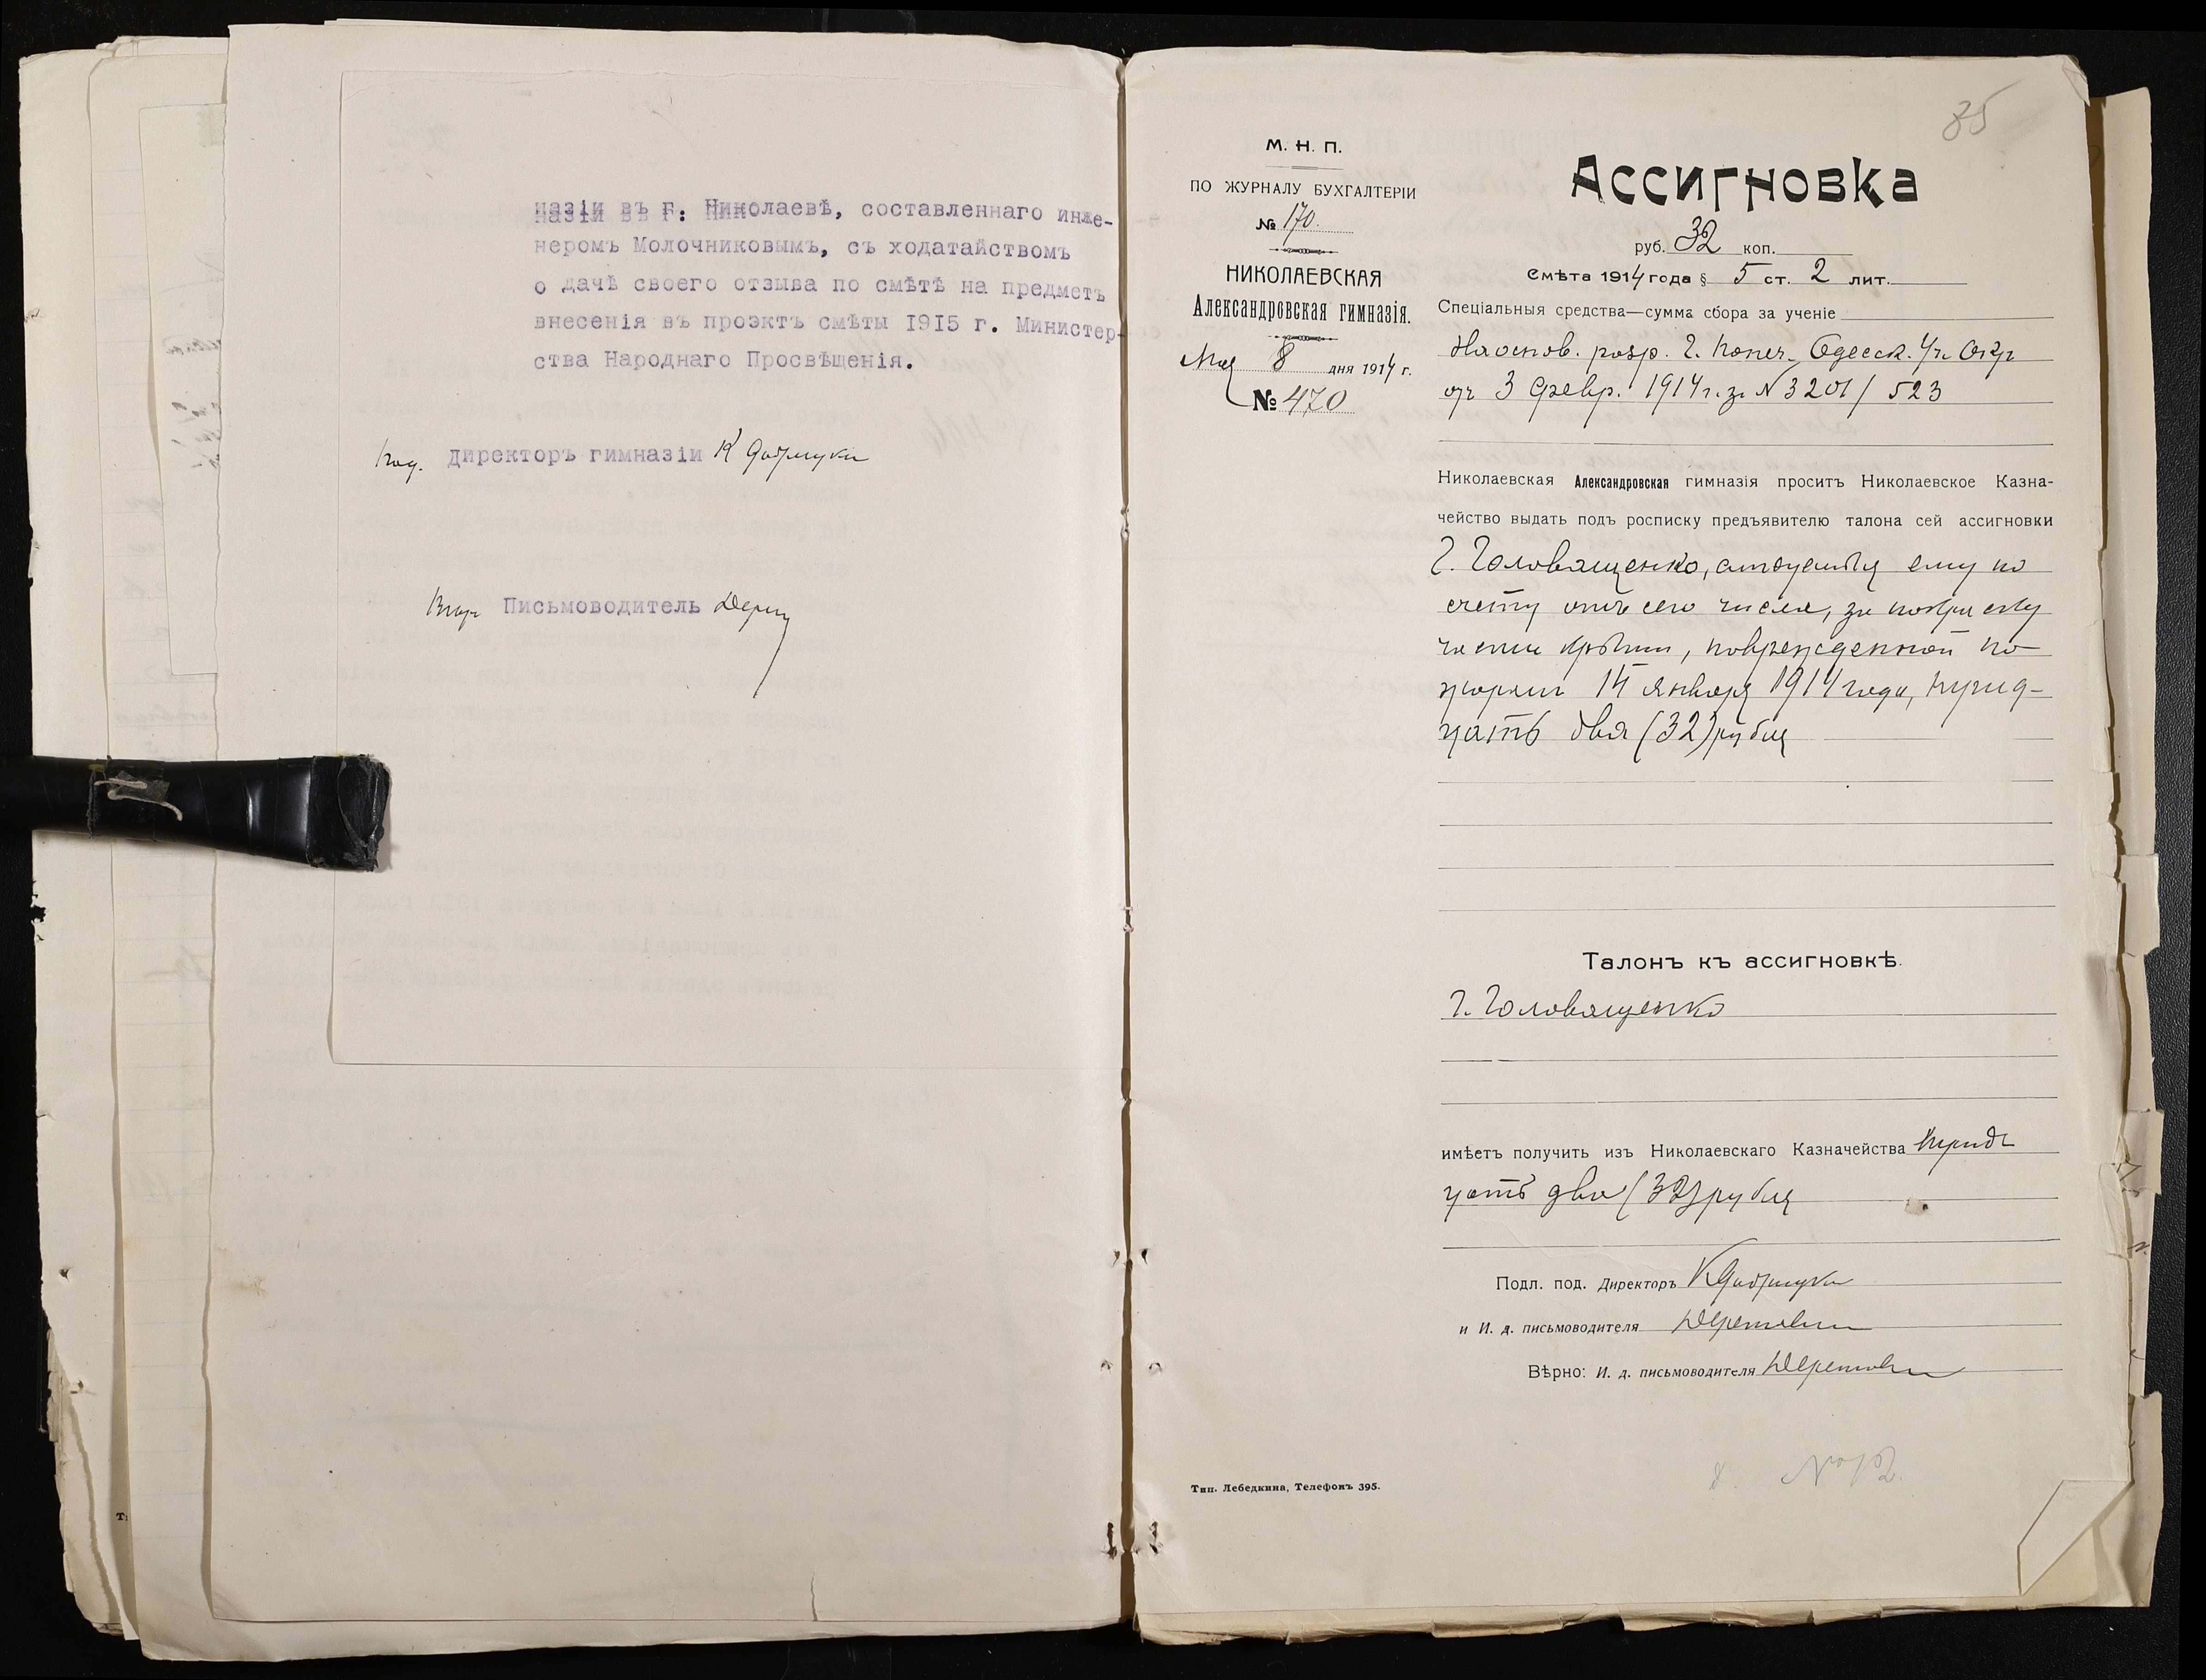 назіи въ г. Николаевѣ, составленнаго инже-
неромъ Молочниковымъ, съ ходатайствомъ
о дачѣ своего отзыва по смѣтѣ на предметъ
внесенія въ проэктъ смѣты 1915 г. Министер-
ства Народнаго Просвѣщенія.
Под. Директоръ гимназіи К
Письмоводитель
35
М. Н. П.
ПО ЖУРНАЛУ БУХГАЛТЕРІИ
№ 170.
НИКОЛАЕВСКАЯ
Александровская гимназія.
Мая 8 дня 1914 г.
№ 470
Ассигновка
руб. 32 коп.
Смѣта 1914 года § 5 ст. 2 лит.
Спеціальныя средства—сумма сбора за ученіе
На основ. розр. Г. Попеч. Одесск. Уч. Окр
от 3 Февр. 1914 г. за № 3201 / 523
Николаевская Александровская гимназія проситъ Николаевское Казна-
чейство выдать подъ росписку предъявителю талона сей ассигновки
Г. Головащенко, ему по
счету отъ сего числа, за
части крыши, поврежденной по-
жаромъ 14 января 1914 года, трид-
цать два (32) рубля
Талонъ къ ассигновкѣ.
Г. Головащенко
имѣетъ получить изъ Николаевскаго Казначейства трид
цать два (32) рубля
Подл. под. Директоръ К
и И. д. письмоводителя
Вѣрно: И. д. письмоводителя
Тип. Лебедкина, Телефонъ 395.